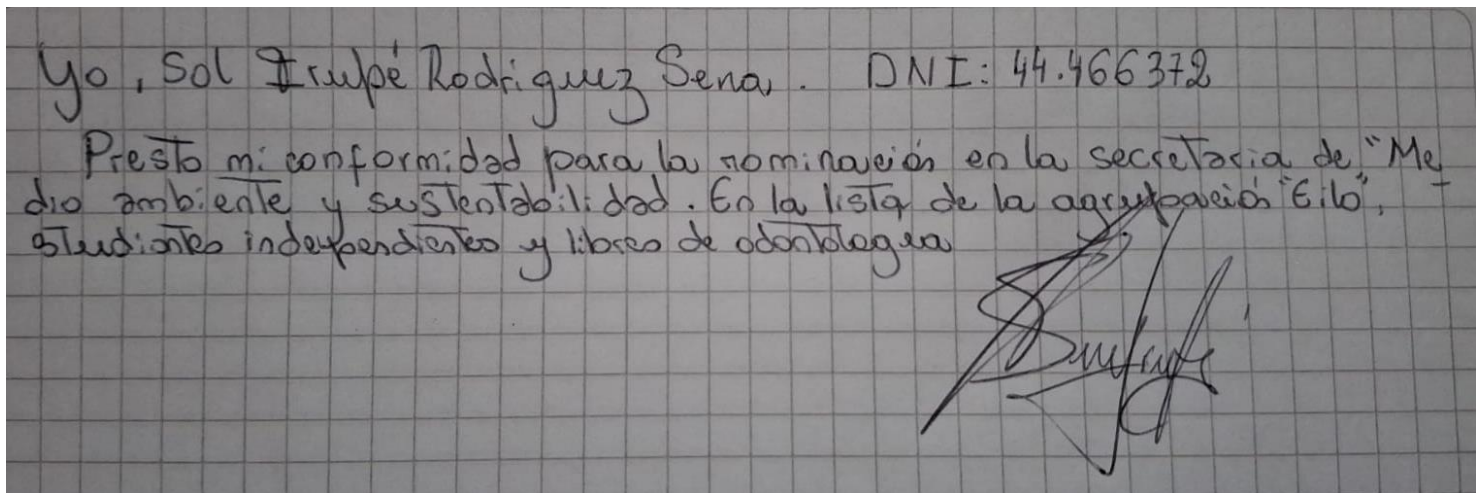 Yo, Sol Irupé Rodriguez Sena. DNI: 44.466372
Presto mi conformidad para la nominación en la secretaria de "Me
dio ambiente y sustentabilidad. En la lista de la agrupación "Eilo",
studiantes independientes y libres de odontologia